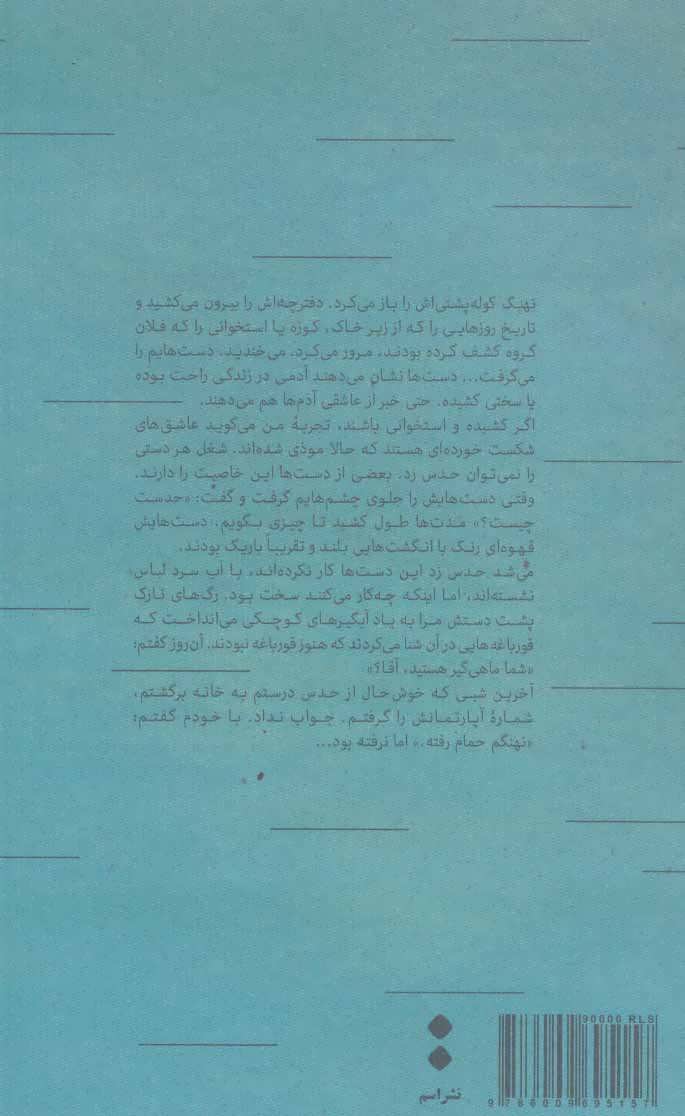 نهنگ کوله‌پشتی‌اش را باز می‌کرد. دفترچه‌اش را بیرون می‌کشید و
تاریخ روزهایی را که از زیر خاک، کوزه یا استخوانی را که فلان
گروه کشف کرده بودند، مرور می‌کرد. می‌خندید. دست‌هایم را
می‌گرفت... دست‌ها نشان می‌دهند آدمی در زندگی راحت بوده
یا سختی کشیده. حتی خبر از عاشقی آدم‌ها هم می‌دهند.
اگر کشیده و استخوانی باشند، تجربۀ من می‌گوید عاشق‌های
شکست خورده‌ای هستند که حالا موذی شده‌اند. شغل هر دستی
را نمی‌توان حدس زد. بعضی از دست‌ها این خاصیت را دارند.
وقتی دست‌هایش را جلوی چشم‌هایم گرفت و گفت: «حدست
چیست؟» مدت‌ها طول کشید تا چیزی بگویم. دست‌هایش
قهوه‌ای رنگ با انگشت‌هایی بلند و تقریباً باریک بودند.
می‌شد حدس زد این دست‌ها کار نکرده‌اند، با آب سرد لباس
نشسته‌اند، اما اینکه چه‌کار می‌کنند سخت بود. رگ‌های نازک
پشت دستش مرا به یاد آبگیرهای کوچکی می‌انداخت که
قورباغه‌هایی در آن شنا می‌کردند که هنوز قورباغه نبودند. آن‌روز گفتم:
«شما ماهی‌گیر هستید، آقا؟»
آخرین شبی که خوش‌حال از حدس درستم به خانه برگشتم،
شمارۀ آپارتمانش را گرفتم. جواب نداد. با خودم گفتم:
«نهنگم حمام رفته.» اما نرفته بود...
نشر اسم
90000 RLS
9 786009 695157